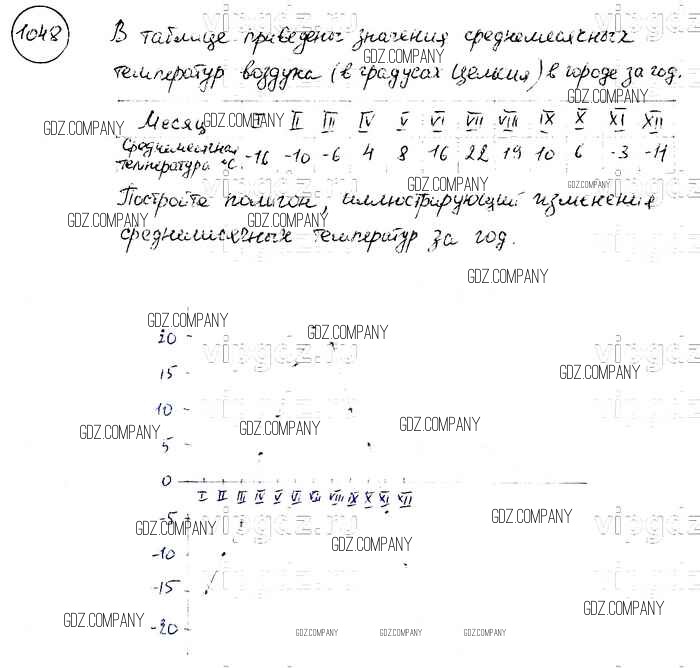 1048 В таблице приведены значения среднемесячных
температур воздуха (в градусах Цельсия) в городе за год.
Месяц I II III IV V VI VII VIII IX X XI XII
Среднемесячная
температура °C. -16 -10 -6 4 8 16 22 19 10 6 -3 -11
Постройте полигон, иллюстрирующий изменения
среднемесячных температур за год.
20
15
10
5
0
I II III IV V VI VII VIII IX X XI XII
-5
-10
-15
-20
GDZ.COMPANY
GDZ.COMPANY
GDZ.COMPANY
GDZ.COMPANY
GDZ.COMPANY
GDZ.COMPANY
GDZ.COMPANY
GDZ.COMPANY
GDZ.COMPANY
GDZ.COMPANY
GDZ.COMPANY
GDZ.COMPANY
GDZ.COMPANY
GDZ.COMPANY
GDZ.COMPANY
GDZ.COMPANY
GDZ.COMPANY
GDZ.COMPANY
GDZ.COMPANY
GDZ.COMPANY
GDZ.COMPANY
GDZ.COMPANY